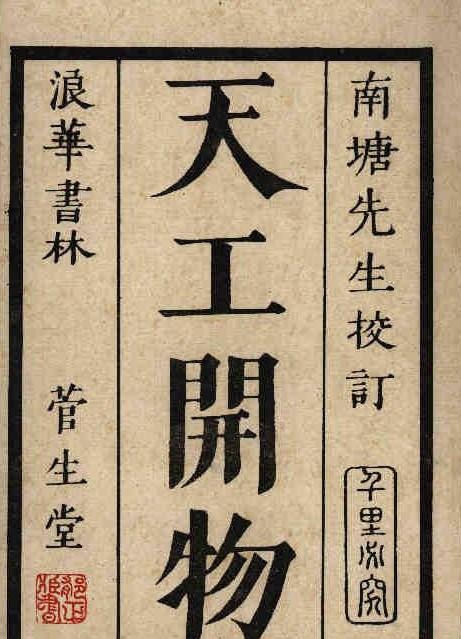 南塘先生校訂
千里必究
天工開物
浪華書林 菅生堂